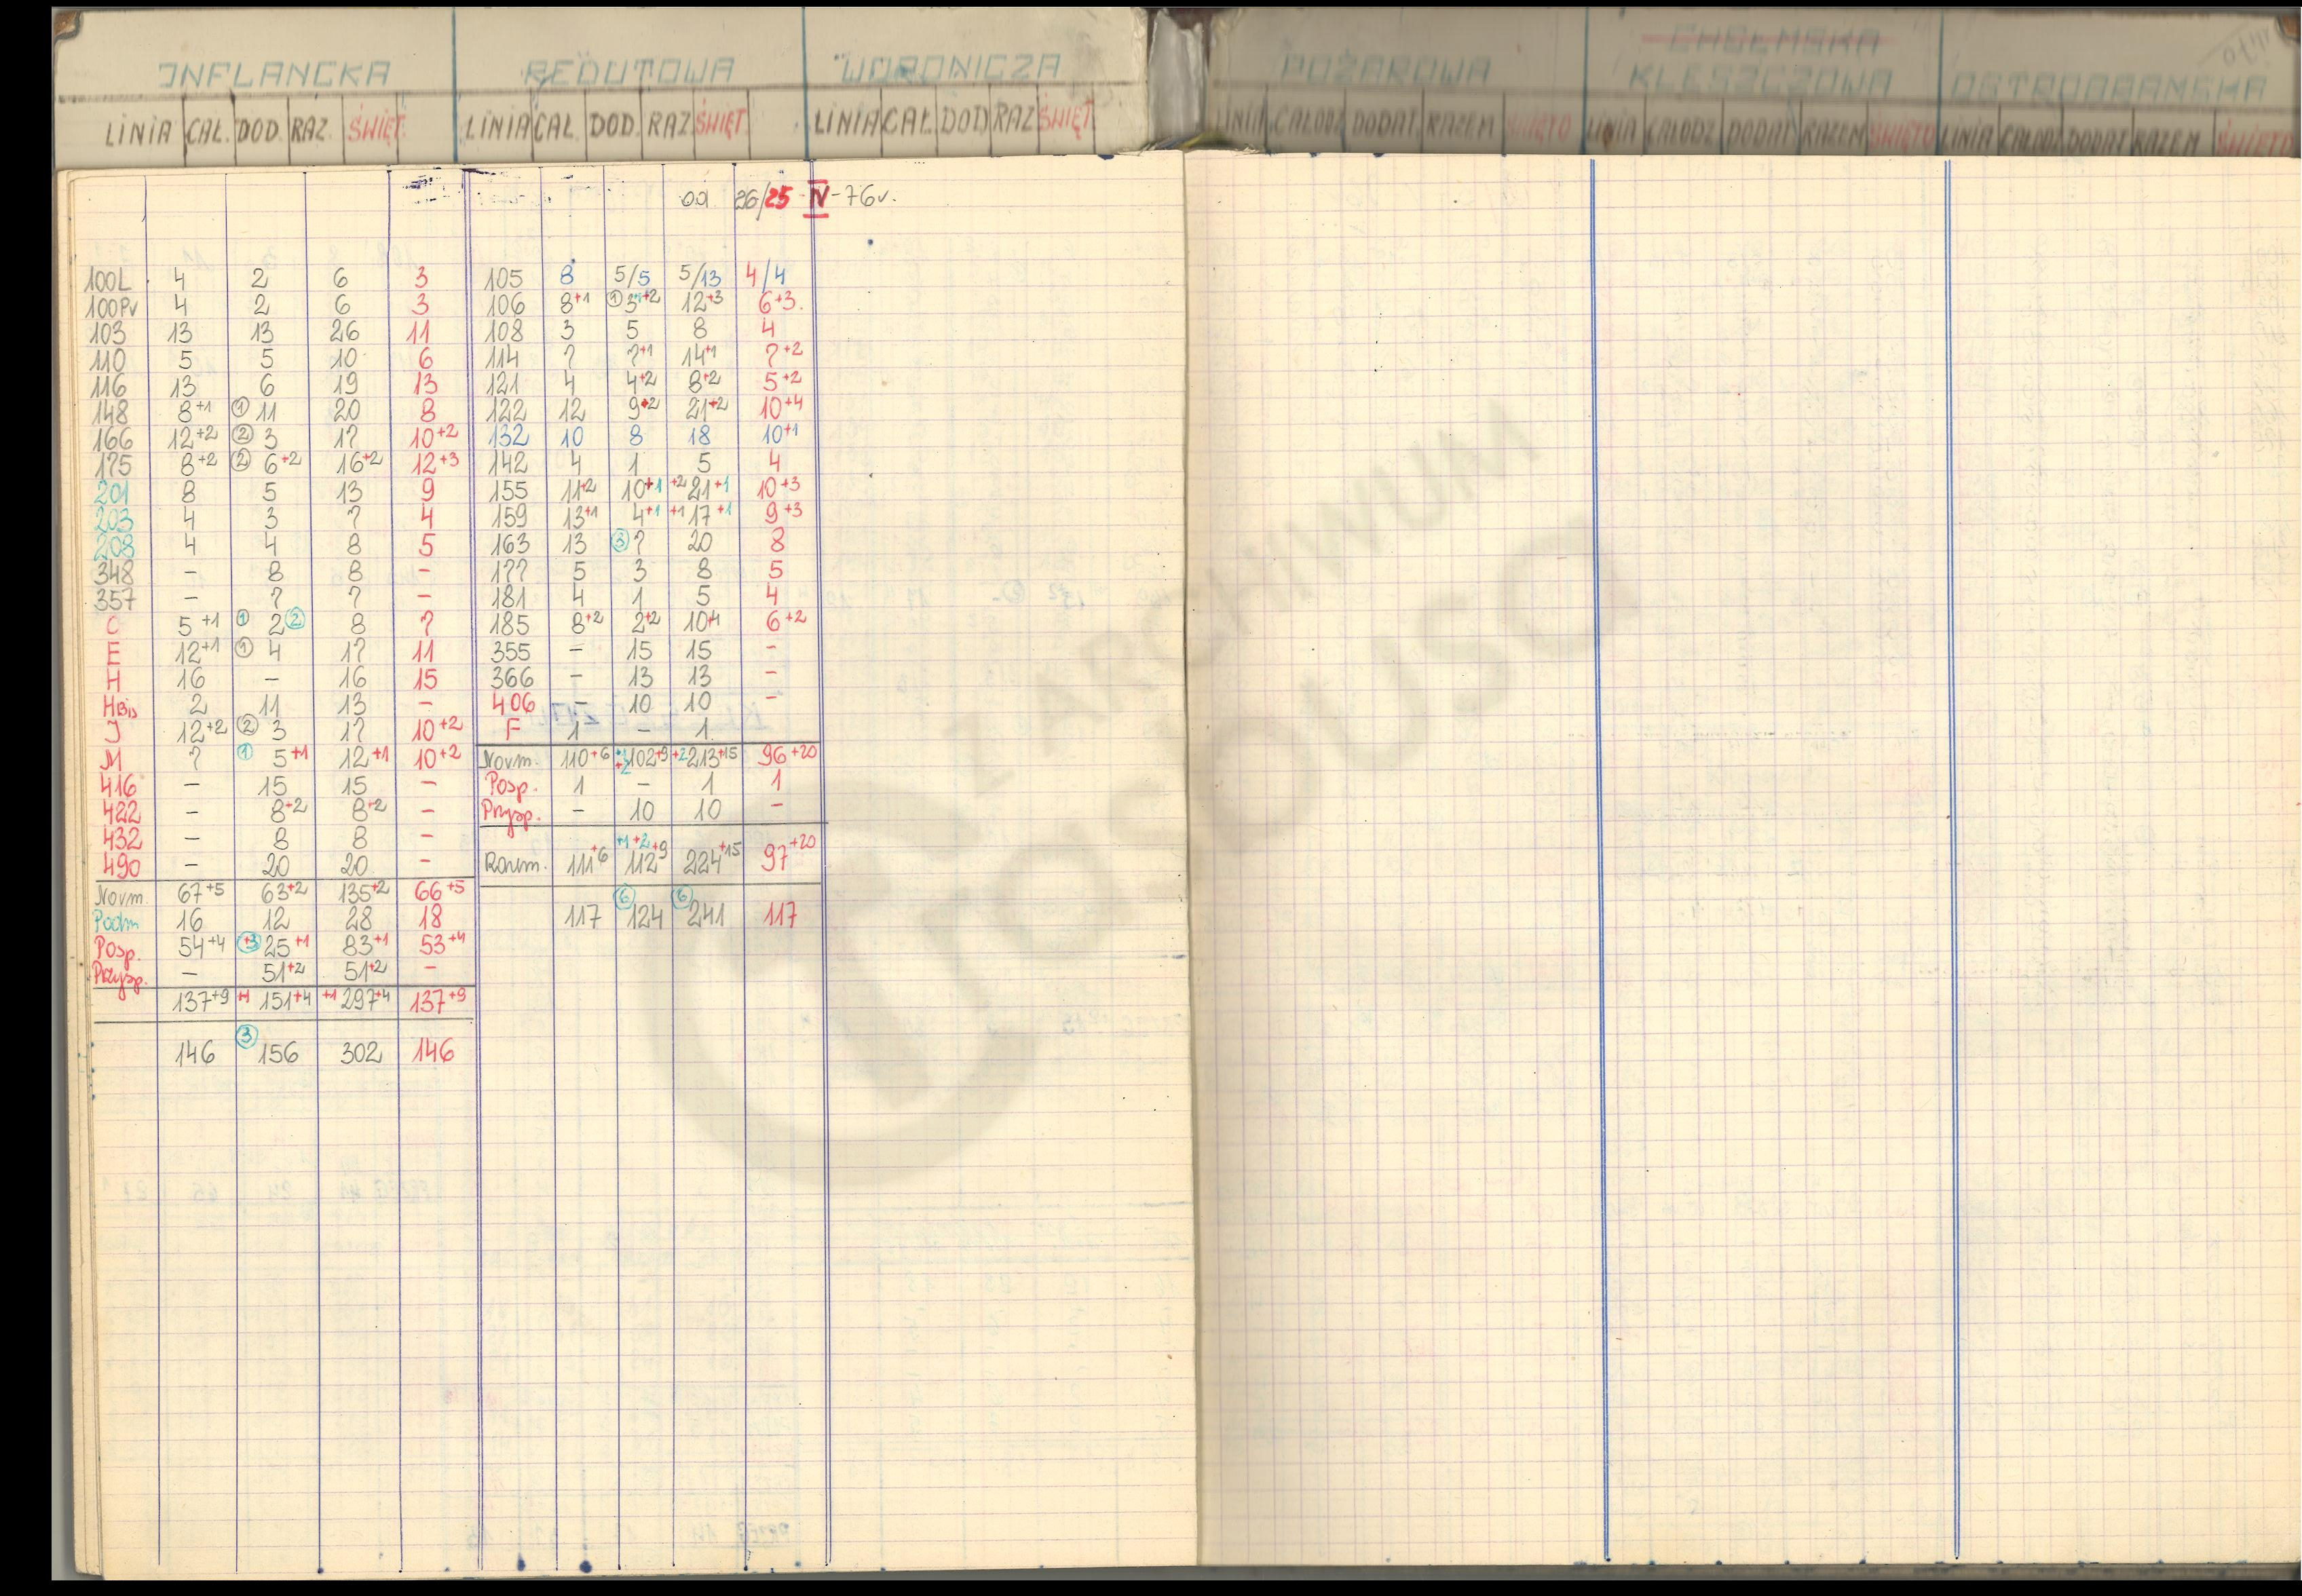 INFLANCKA REDUTOWA WORONICZA POŻAROWA CHEŁMSKA KLESZCZOWA OSTROBRAMSKA
LINIA CAŁ. DOD. RAZ. ŚWIĘT. LINIA CAŁ. DOD. RAZ ŚWIĘT. LINIA CAŁ. DOD RAZ ŚWIĘT. LINIA CAŁODZ DODAT. RAZEM ŚWIĘTO LINIA CAŁODZ DODAT RAZEM ŚWIĘTO LINIA CAŁODZ DODAT RAZEM ŚWIĘTO
od 26/25 IV-76r.
100L 4 2 6 3 105 8 5/5 5/13 4/4
100Pr 4 2 6 3 106 8+1 ① 3+1+2 12+3 6+3.
103 13 13 26 11 108 3 5 8 4
110 5 5 10 6 114 7 7+1 14+1 7+2
116 13 6 19 13 121 4 4+2 8+2 5+2
148 8+1 ① 11 20 8 122 12 9+2 21+2 10+4
166 12+2 ② 3 17 10+2 132 10 8 18 10+1
175 8+2 ② 6+2 16+2 12+3 142 4 1 5 4
201 8 5 13 9 155 11+2 10+1 +2 21+1 10+3
203 4 3 7 4 159 13+1 4+1 +1 17+1 9+3
208 4 4 8 5 163 13 ③ 7 20 8
348 - 8 8 - 177 5 3 8 5
357 - 7 7 - 181 4 1 5 4
C 5+1 ① 2 ② 8 7 185 8+2 2+2 10+4 6+2
E 12+1 ① 4 17 11 355 - 15 15 -
H 16 - 16 15 366 - 13 13 -
HBis 2 11 13 - 406 - 10 10 -
J 12+2 ② 3 17 10+2 F 1 - 1
M 7 ① 5+1 12+1 10+2 Norm. 110+6 +1+2 102+9 +2 213+15 96+20
416 - 15 15 - Posp. 1 - 1 1
422 - 8+2 8+2 - Przysp. - 10 10 -
432 - 8 8 -
490 - 20 20 - Razem. 111+6 +1+2 112+9 224+15 97+20
Norm. 67+5 63+2 135+2 66+5
Podm 16 12 28 18 117 ⑥ 124 ⑥ 241 117
Posp. 54+4 +3 25+1 83+1 53+4
Przysp. - 51+2 51+2 -
137+9 +1 151+4 +1 297+4 137+9
146 ③ 156 302 146